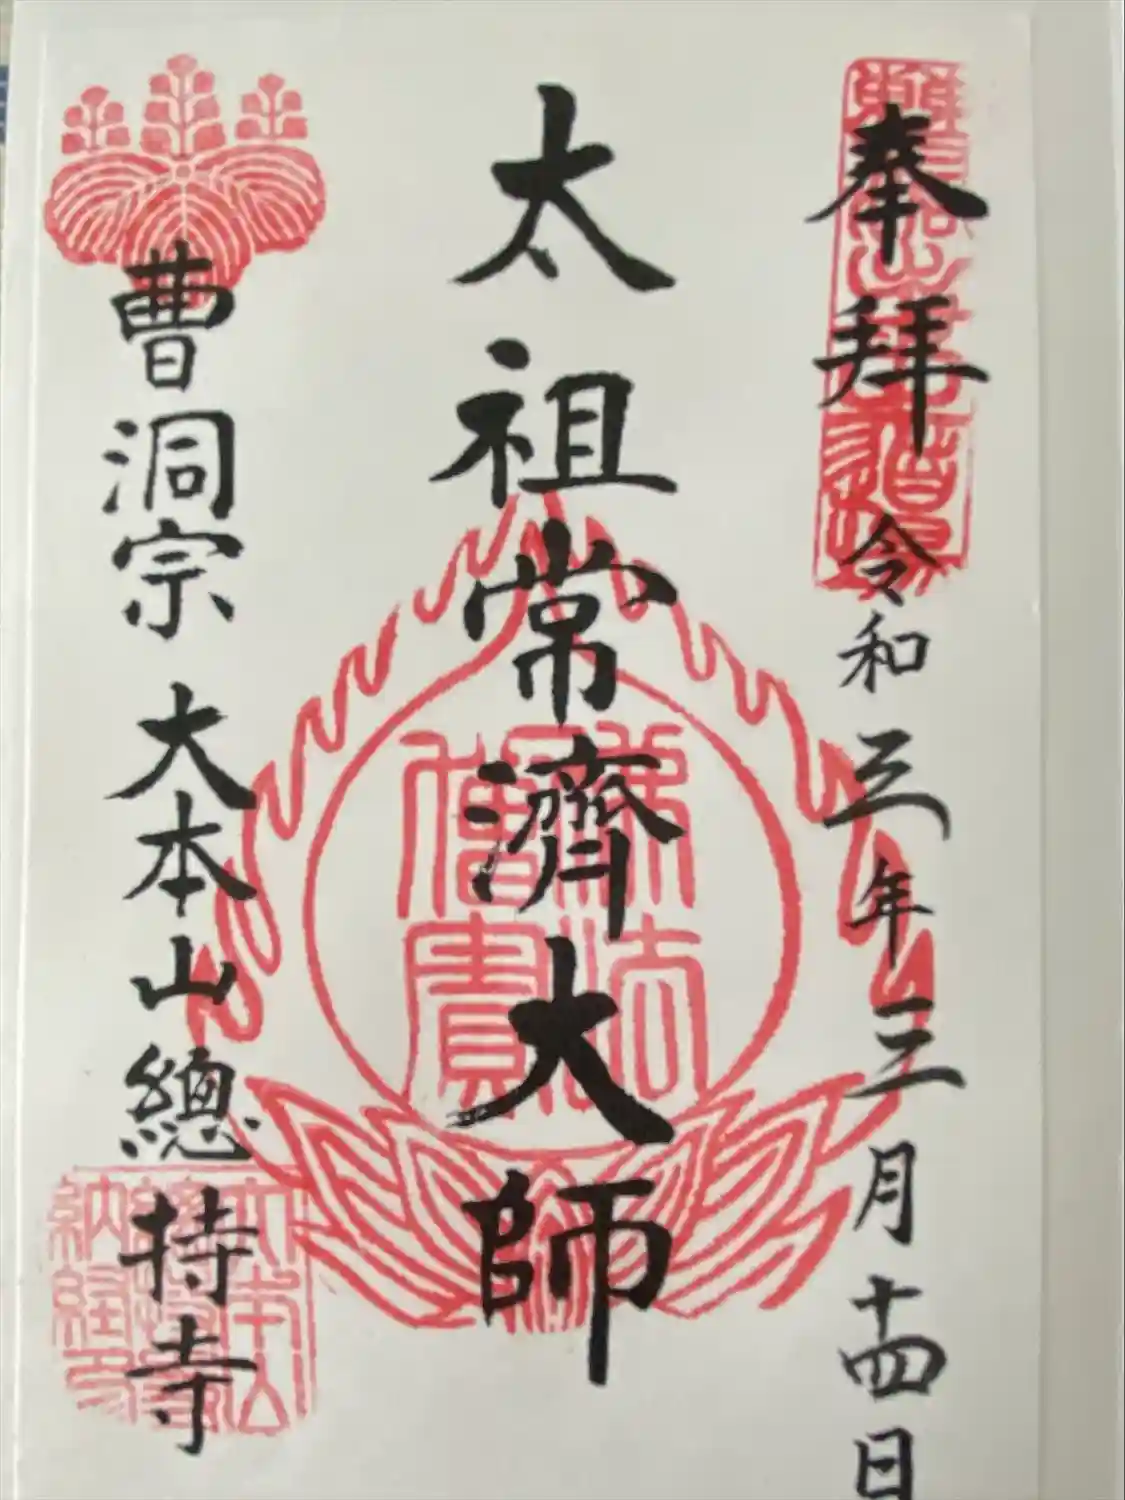 奉拜
令和三年三月十四日
太祖常濟大師
佛法僧寳
曹洞宗大本山總持寺